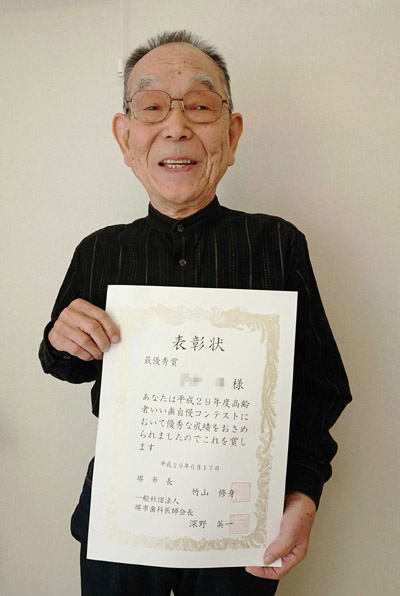 表彰状
最優秀賞
様
あなたは平成29年度高齢
者いい歯自慢コンテストに
おいて優秀な成績をおさめ
られましたのでこれを賞し
ます
平成29年6月17日
堺市長 竹山 修身
一般社団法人
堺市歯科医師会長 深野 英一